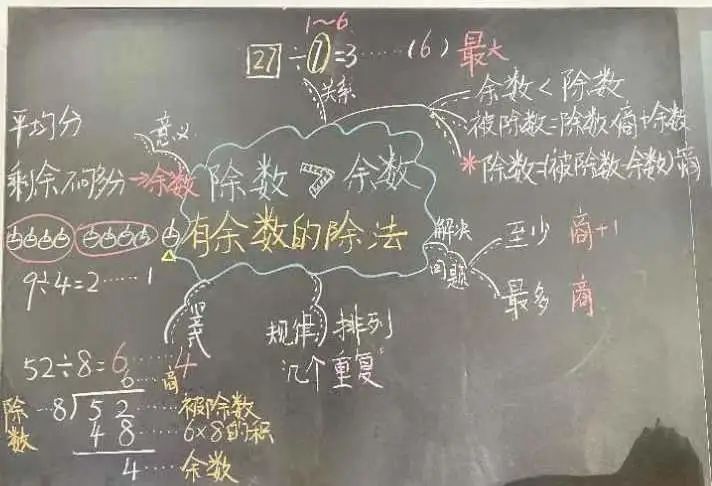 1～6
27÷7=3……(6) 最大
关系
余数<除数
被除数=除数×商+余数
*除数=(被除数-余数)÷商
平均分
意义
剩余不够分→余数
除数 > 余数
有余数的除法
9÷4=2……1
解决
问题
至少 商+1
最多 商
竖式
规律
排列
几个"重复"
52÷8=6……4
6……商
除数
8)52……被除数
48……6×8的积
4……余数